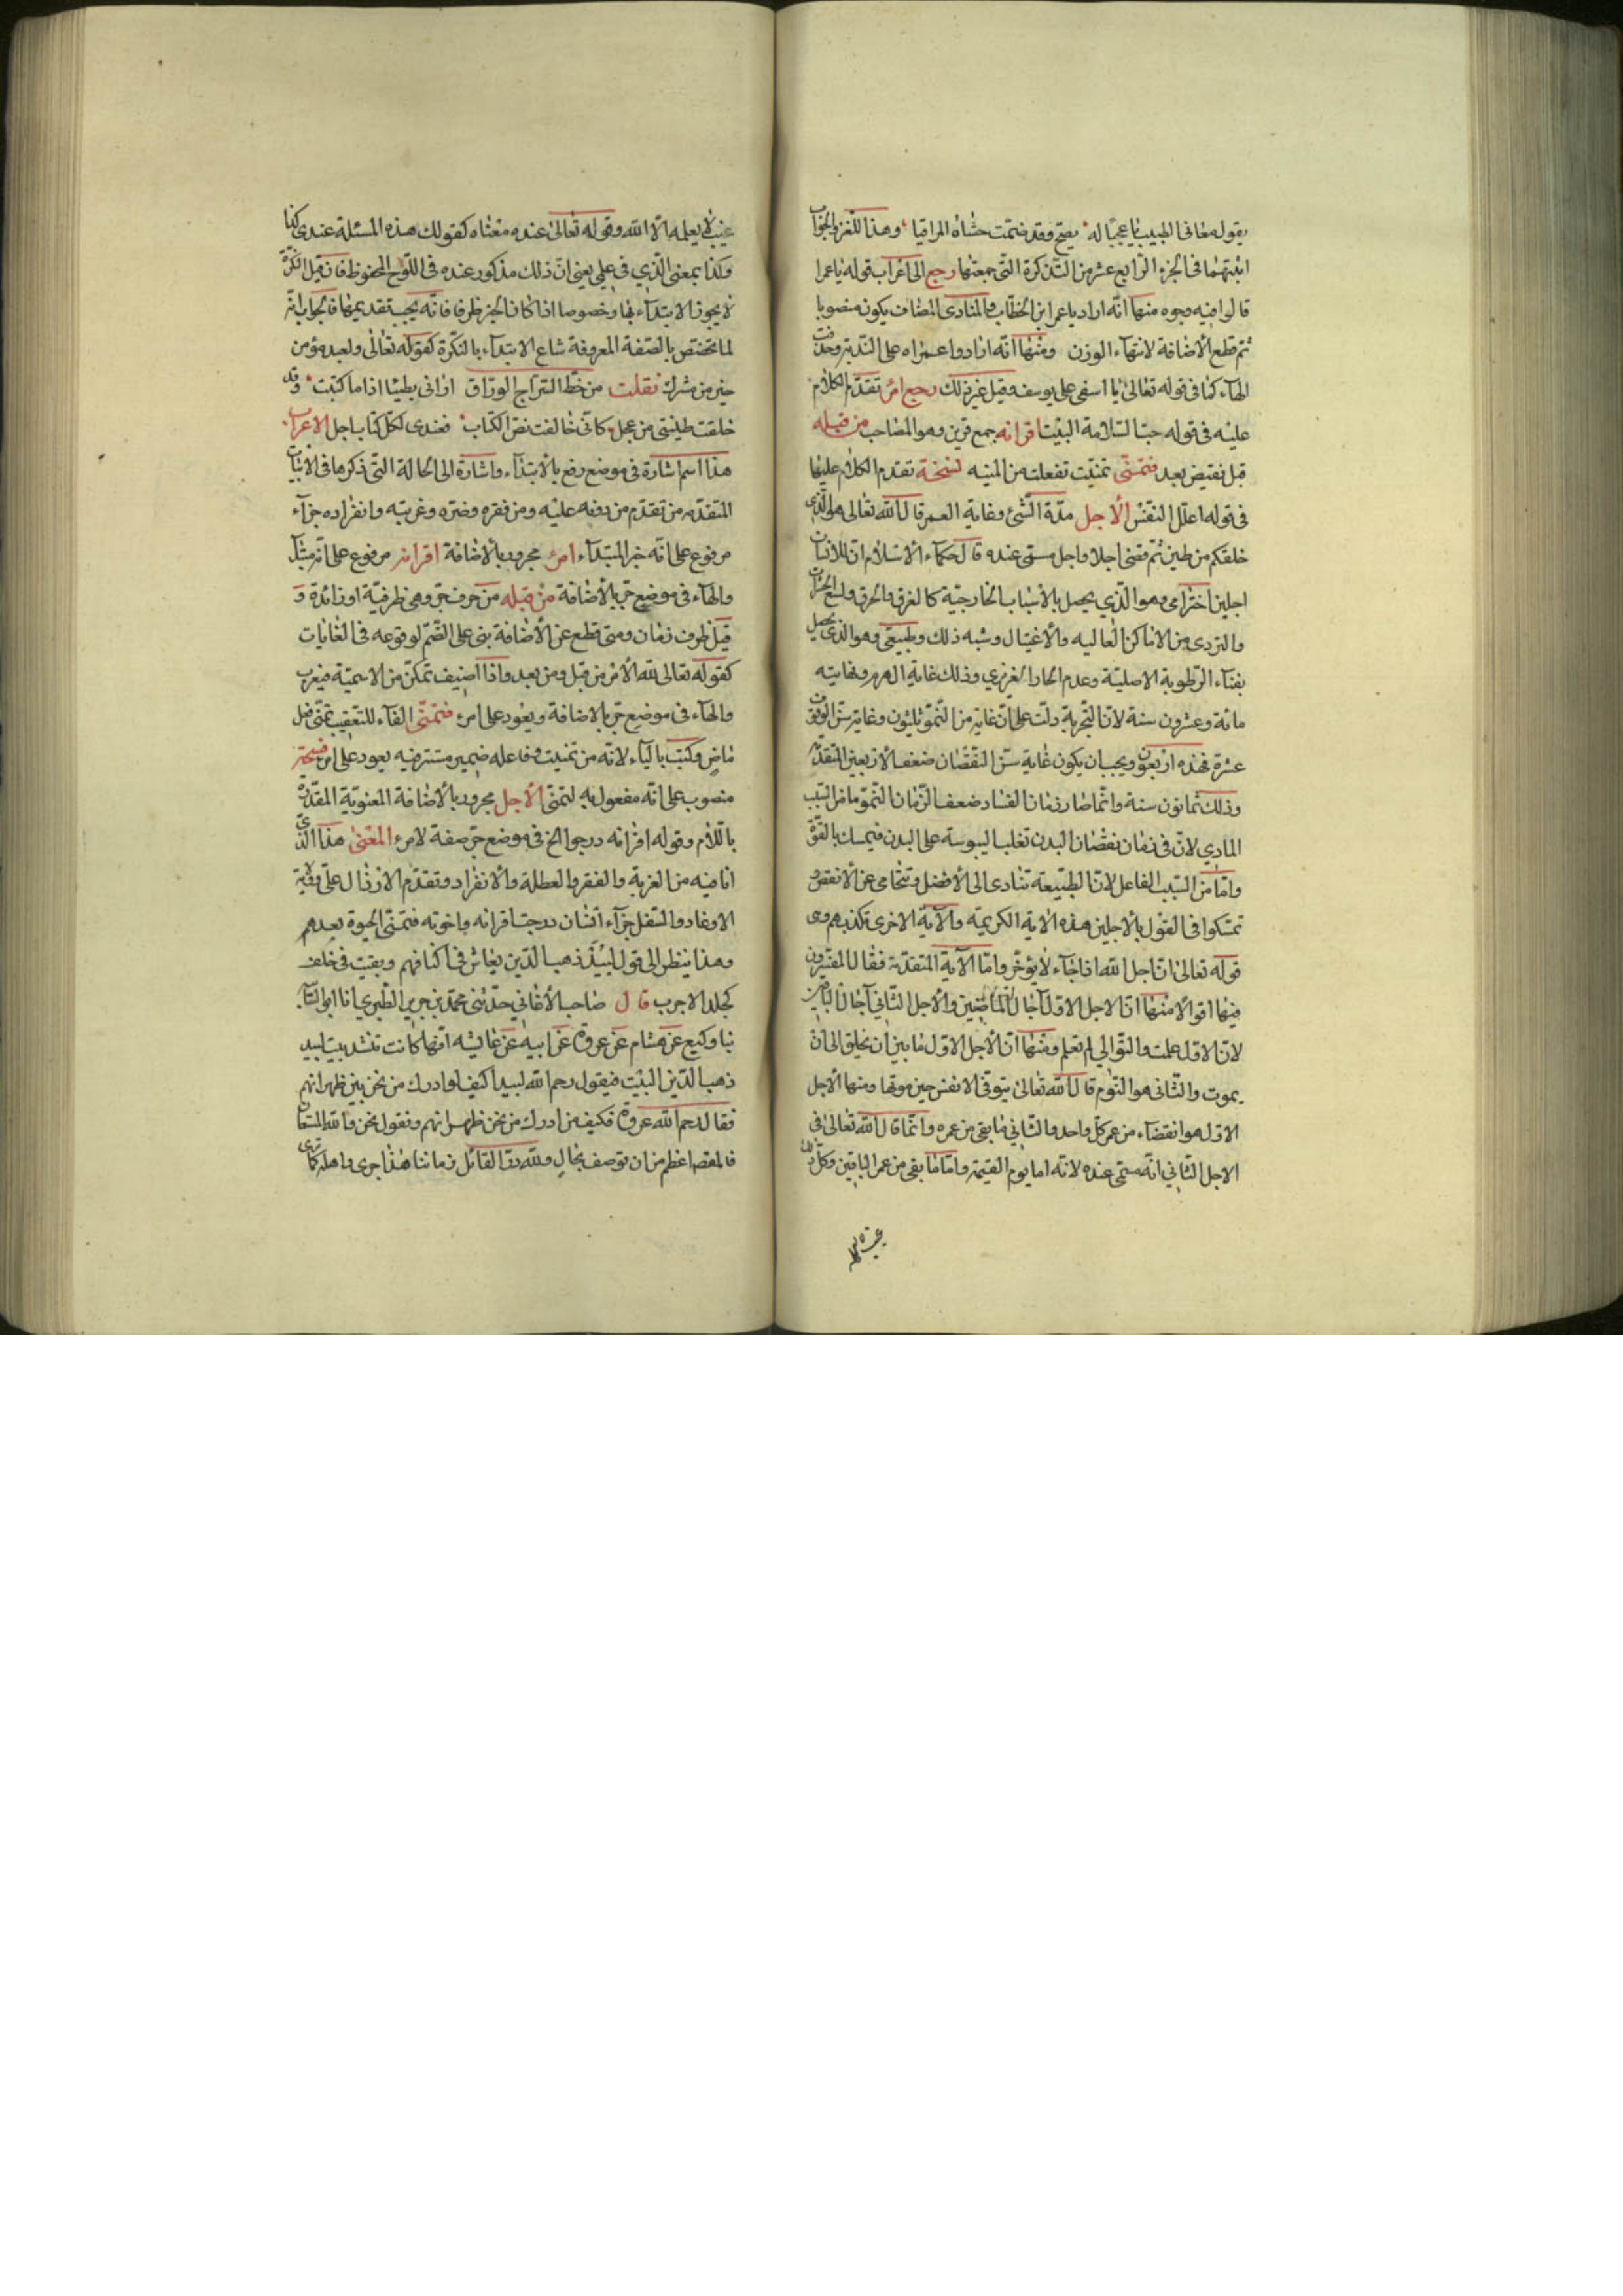 يقوله معافى الطبيب يا عجبًا له يصحّ وقد ضمّت حشاه المراقيا وهذا اللغز والجواب
اثبتهما فى الجزء الرّابع عشر من التّذكرة التى جمعتها رجع الى اعراب قوله يا عمرا
قالوا فيه وجوه منها انّه اراد يا عمر ابن الخطّاب والمنادى المضاف يكون منصوبا
ثم قطع الاضافة لانتهاء الوزن ومنها انّه ارادوا عمراه على النّدبة وحذفت
الهآء كما فى قوله تعالى يا اسفى على يوسف وقيل غير ذلك رجع امرء تقدّم الكلام
عليه فى قوله حبّ السّلامة البيت اقرانه جمع قرين وهو المصاحب من قبله
قبل نقيض بعد فتمنّى تمنّيت تفعلت من المنيه فسحة تقدم الكلام عليها
فى قوله اعلّل النفس الأجل مدّة الشّئ وغاية العمر قال الله تعالى هو الّذى
خلقكم من طين ثمّ قضى اجلا واجل مسمّى عنده قال حكماء الاسلام انّ للانسان
اجلين اخترامى وهو الّذي يحصل بالاسباب الخارجيّة كالغرق والحرق ولسع الحشرات
والتردى من الاماكن العاليه والاغتيال وشبه ذلك وطبيعى وهو الذى يحصل
بفنآء الرّطوبة الاصليّة وعدم الحار الغريزي وذلك غاية الهرم ونهايته
مائة وعشرون سنة لانّ التّجربة دلّت على انّ غاية من النّموّ ثلثون وغاية سنّ الوقوف
عشرة فهذه اربعون ويجب ان يكون غاية سنّ النّقصان ضعف الاربعين المتقدّمة
وذلك ثمانون سنة وانّما صار زمان الفساد ضعف الزّمان النّموّ ما من السّبب
المادي لانّ فى زمان نقصان البدن تغلب اليبوسة على البدن فيمسك بالقوّة
وامّا من السّبب الفاعل لانّ الطّبيعة تتادى الى الأفضل وتتحامى عن الانقص و
تمسّكوا فى القول بالأجلين هذه الاية الكريمة والآية الاخرى تكذبهم وهى
قوله تعالى انّ اجل الله اذا جآء لا يؤخّر وامّا الآية المتقدّمة فقال المفسّرون
فيها اقوالا منها انّ الاجل الاوّل آجال الماضين والأجل الثّاني آجال الباقين
لانّ الاوّل علمت والتوّالي لم تعلم ومنها انّ الأجل الاوّل ما بين ان يخلق الى ان
يموت والثّانى هو النّوم قال الله تعالى يتوفّى الانفس حين موتها ومنها الاجل
الاوّل هو انقضاء من عمر كلّ واحد والثّاني ما بقى من عمره وانّما قال الله تعالى فى
الاجل الثّاني انّه مسمّى عنده لانّه اما يوم القيٰمة وامّا ما بقى من عمر الباقين وكلّ ذلك
غيب لا يعلمه الّا الله وقوله تعالى عنده معناه كقولك هذه المسئلة عندى كذا
وكذا بمعنى الّذي فى علمي يعنى انّ ذلك مذكور عنده فى اللّوح المحفوظ فان قيل النّكرة
لا يجوز الابتدآء بها وخصوصا اذا كان الخبر ظرفا فانّه يجب تقديمها فالجواب انّه
لما تخصّص بالصّفة المعروفة شاع الابتدآء بالنكّرة كقوله تعالى ولعبد مؤمن
خير من مشرك نقلت من خطّ السّراج الورّاق ارانى بطيئا اذا ما كتبت وقد
خلقت طينتى من عجل كانّى خالفت نصّ الكتاب فعندى لكلّ كتاب اجل الاعراب
هذا اسم اشارة فى موضع رفع بالابتدآء واشارة الى الحالة التّى ذكرها فى الابيات
المتقدّمه من تقدّم من دونه عليه ومن فقره وضرّه وغربته وانفراده جزآء
مرفوع على انّه خبر المبتدآء امرء مجرور بالاضافة اقرانه مرفوع على انّه مبتدأ
والهآء فى موضع جرّ بالاضافة من قبله من حرف جرّ وهى ظرفيّة او زائدة و
قبل ظرف زمان ومتى قطع عن الاضافة بنى على الضّمّ لوقوعه فى الغايات
كقوله تعالى لله الأمر من قبل ومن بعد واذا اضيف تمكّن من الاسميّة فيعرب
والهآء فى موضع جرّ بالاضافة ويعود على امرء فتمنّى الفآء للتعقيب تمنّى فعل
ماض وكتب بالياء لانّه من تمنيت وفاعله ضمير مستتر فيه يعود على امرء فسحة
منصوب على انّه مفعول به لتمنّى الأجل مجرور بالاضافة المعنويّة المقدّرة
باللّام وقوله اقرانه درجوا الخ فى موضع جرّ صفة لامرء المعنى هذا الّذي
انا فيه من الغربة والفقر والعطلة والانفراد وتقدّم الارذال علىّ ورؤية
الاوغاد والسّفل جزآء انسان درجت اقرانه واخوته فتمنّى الحيوة بعدهم
وهذا ينظر الى قول لبيد ذهب الّذين يعاش فى اكنافهم وبقيت فى خلف
كجلد الاجرب قال صاحب الأغاني حدّثنى محمّد بن جرير الطّبري انا ابو السّائب
نبا وكيع عن هشام عن عروة عن ابيه عن عايشه انّها كانت تنشد بيت لبيد
ذهب الّذين البيت فيقول رحم الله لبيدا كيف لو ادرك من نحن بين ظهرانهم
فقال رحم الله عروة فكيف من ادرك من نحن ظهرانهم ونقول نحن والله المستعان
فالقصة اعظم من ان توصف بحال ولله درّ القائل زماننا هذا جرى واهله كما ترى